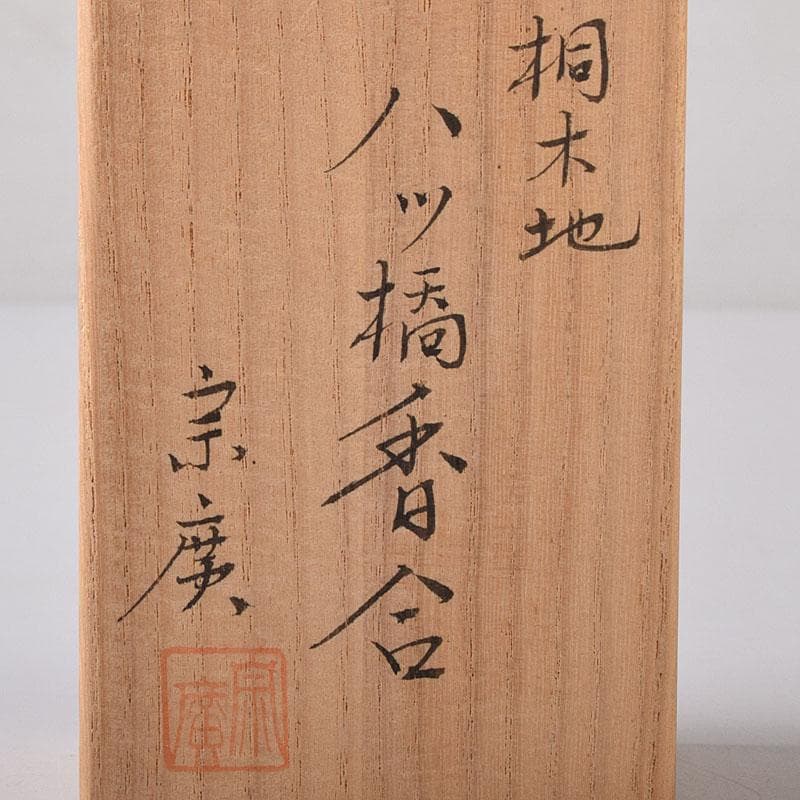 桐木地
八ッ橋香合
宗廣
宗廣